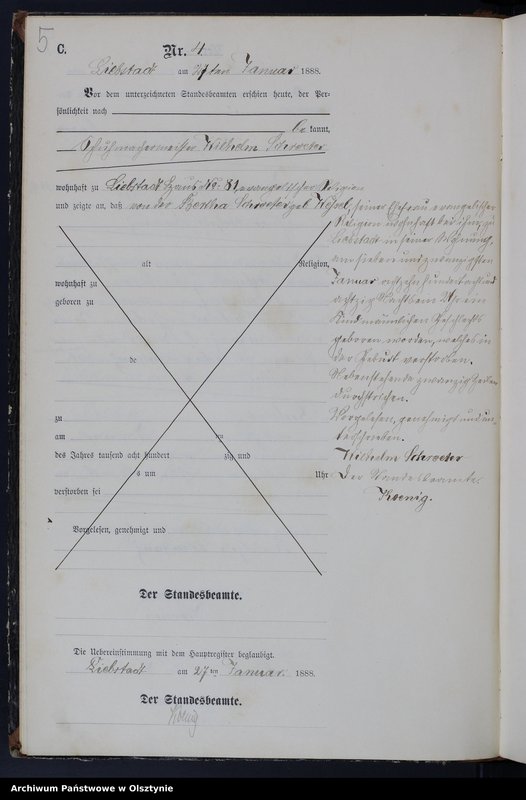 5
C.
Nr. 4.
Liebstadt am 27ten Januar 1888.
Vor dem unterzeichneten Standesbeamten erschien heute, der Per-
sönlichkeit nach
be kannt,
Schuhmachermeister Wilhelm Schroeter
wohnhaft zu Liebstadt Haus No: 81, evangelischer Religion
und zeigte an, daß von der Bertha Schroeter geb. seiner Ehefrau, evangelischer
Religion wohnhaft bei ihm, zu
Liebstadt in seiner Wohnung,
am sieben und zwanzigsten
alt Religion,
Januar achtzehnhundertacht und
wohnhaft zu
achtzig Nachts um Uhr ein
geboren zu
Kind männlichen Geschlechts
geboren worden, welches in
de
der Geburt verstorben.
Nebenstehende zwanzig Zeilen
durchstrichen.
zu
Vorgelesen, genehmigt und un-
am
terschrieben.
des Jahres tausend acht hundert zig und
Wilhelm Schroeter
s um Uhr
Der Standesbeamte.
verstorben sei
Koenig.
Vorgelesen, genehmigt und
Der Standesbeamte.
Die Uebereinstimmung mit dem Hauptregister beglaubigt.
Liebstadt am 27ten Januar 1888.
Der Standesbeamte.
Koenig
Archiwum Państwowe w Olsztynie